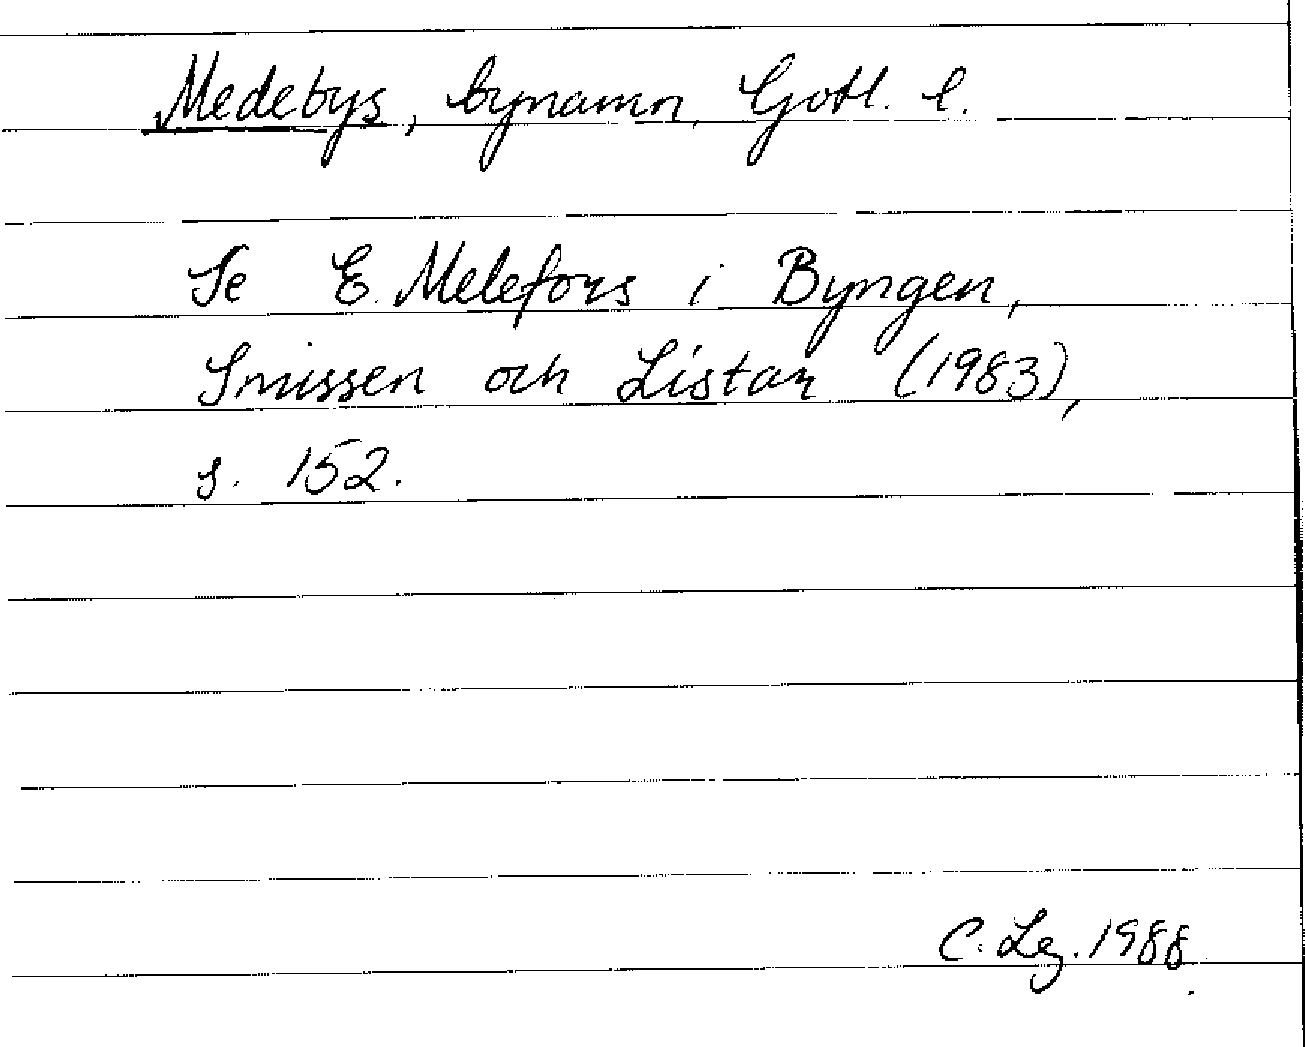 Medebys, bynamn, Gotl. l.
Se E. Melefors i Byngen,
Smissen och Listar (1983),
s. 152.
C. Lg. 1988.